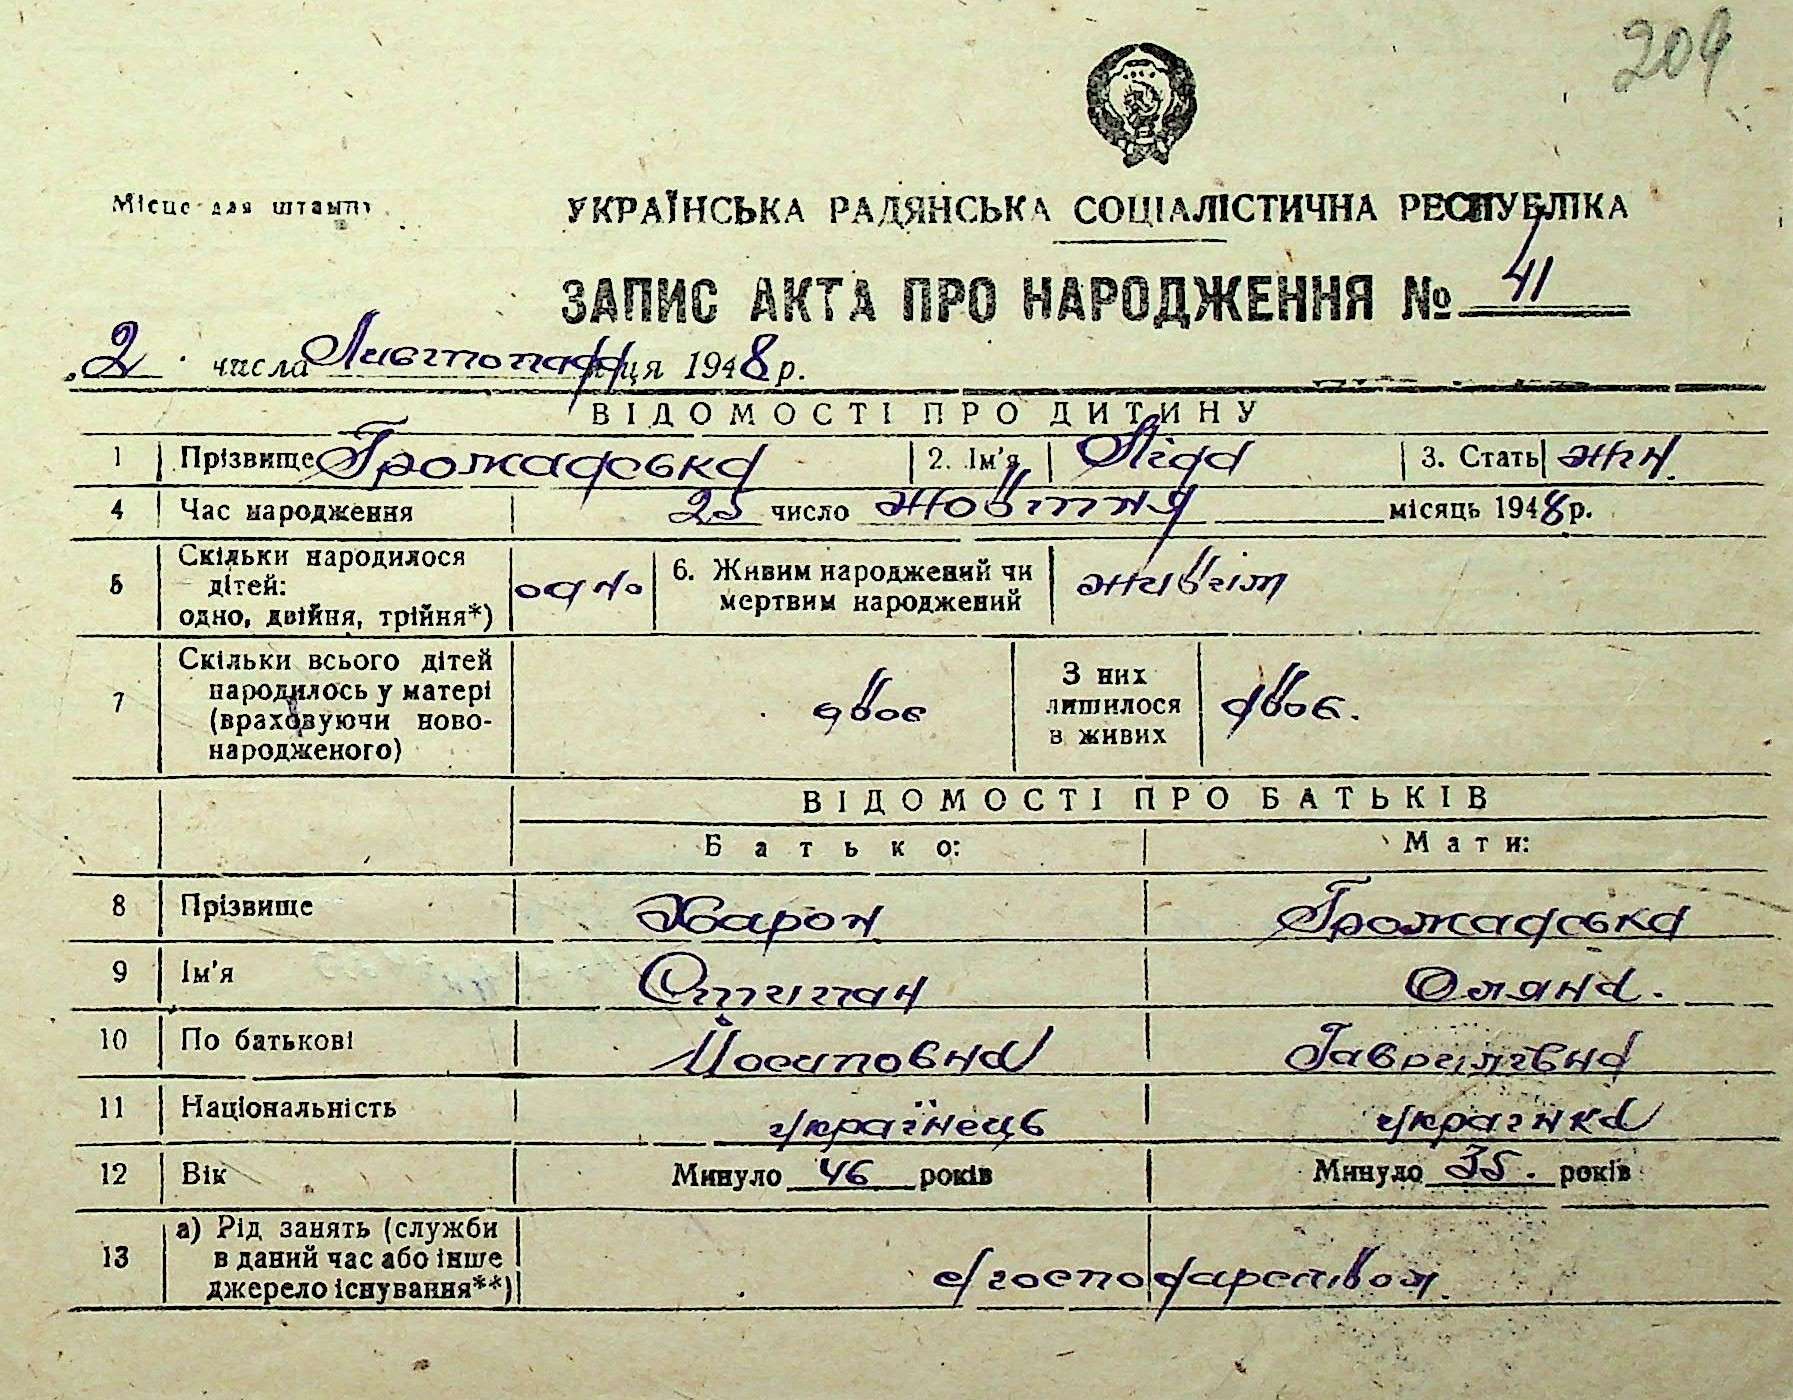 204
Місце для штампу
УКРАЇНСЬКА РАДЯНСЬКА СОЦІАЛІСТИЧНА РЕСПУБЛІКА
ЗАПИС АКТА ПРО НАРОДЖЕННЯ № 41
„2 числа Листопада місяця 1948 р.
ВІДОМОСТІ ПРО ДИТИНУ
1 Прізвище Громадська 2. Ім'я Ліда 3. Стать жін.
4 Час народження 25 число Жовтня місяць 1948 р.
5 Скільки народилося дітей: одно, двійня, трійня*) одно 6. Живим народжений чи мертвим народжений
7 Скільки всього дітей народилось у матері (враховуючи ново-народженого) двоє З них лишилося в живих двоє.
ВІДОМОСТІ ПРО БАТЬКІВ
Батько: Мати:
8 Прізвище Хварон Громадська
9 Ім'я Стипан Оляна.
10 По батькові Йосиповна Гаврилівна
11 Національність українець українка
12 Вік Минуло 46 років Минуло 35. років
13 а) Рід занять (служби в даний час або інше джерело існування**)